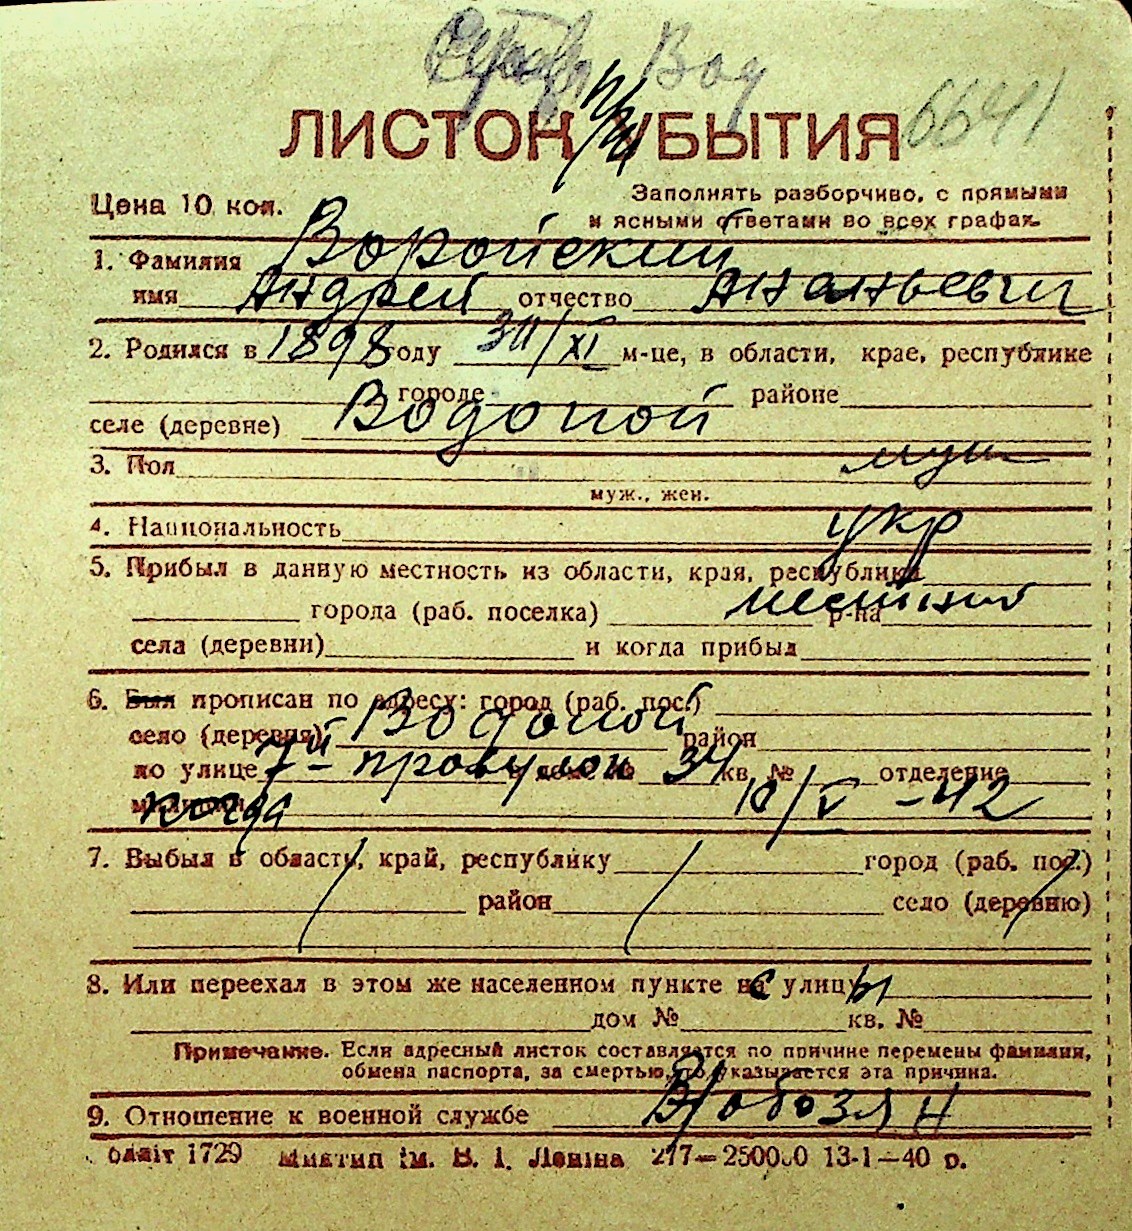 Вод
6641
ЛИСТОК УБЫТИЯ
Цена 10 коп.
Заполнять разборчиво, с прямыми
и ясными ответами во всех графах.
1. Фамилия Воройский
имя Андрей отчество Ананьевич
2. Родился в 1898 году 30/XI м-це, в области, крае, республике
городе районе
селе (деревне) Водопой
3. Пол муж
муж., жен.
4. Национальность укр
5. Прибыл в данную местность из области, края, республики
местный
города (раб. поселка) р-на
села (деревни) и когда прибыл
6. Был прописан по адресу: город (раб. пос.)
село (деревня) Водопой район
по улице 7й провулок дом № 34 кв. № отделение
милиции когда 10/V-42
7. Выбыл в область, край, республику город (раб. пос.)
район село (деревню)
8. Или переехал в этом же населенном пункте с улицы
дом № кв. №
Примечание. Если адресный листок составляется по причине перемены фамилии,
обмена паспорта, за смертью, то указывается эта причина.
9. Отношение к военной службе В/обозян
облліт 1729 Миктип ім. В. І. Леніна 277—250000 13-1—40 р.